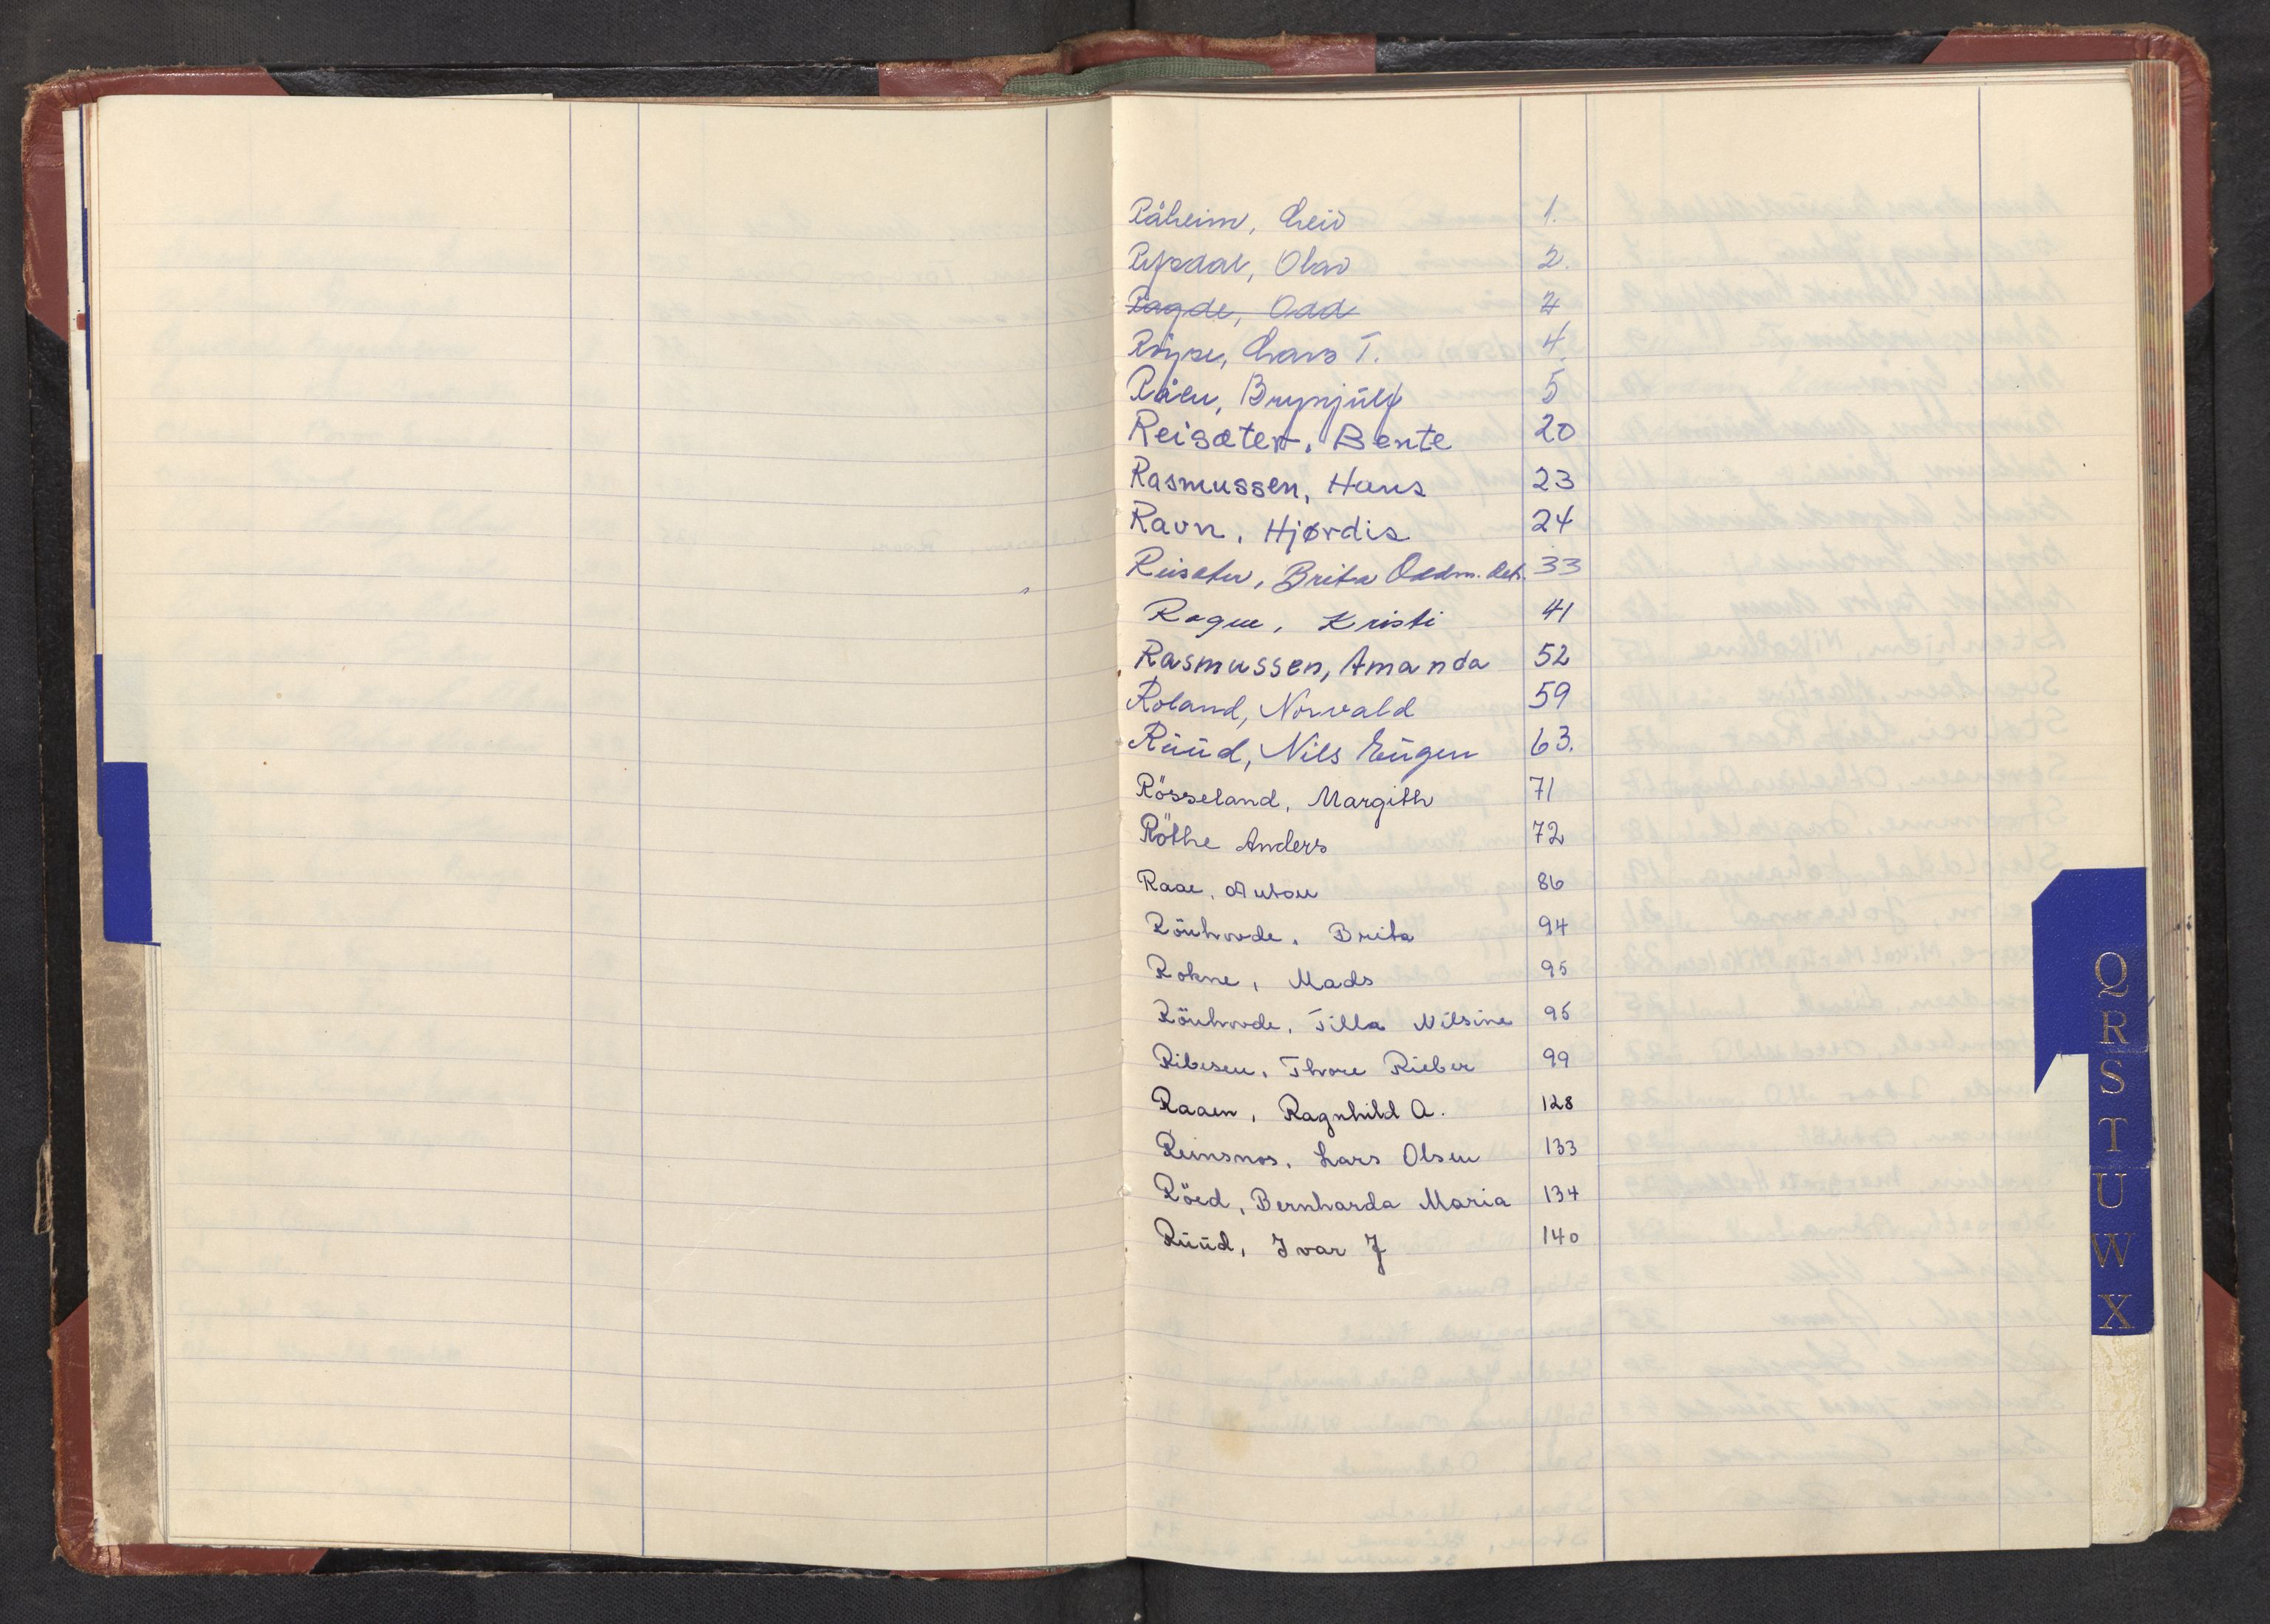 Råheim, Leiv 1.
Rysdal, Olav 2.
Ragde, Odd 4
Röyse, Lars T. 4.
Råen, Brynjülf 5
Reisæter, Bente 20
Rasmussen, Hans 23
Ravn, Hjørdis 24
Reisæter, Brita Oddm. 33
Rogne, Kristi 41
Rasmussen, Amanda 52
Roland, Norvald 59
Rüüd, Nils Eügen 63.
Rösseland, Margith 71
Röthe Anders 72
Raae, Anton 86
Rönhovde, Brita 94
Rokne, Mads 95
Rönhovde, Tilla Nilsine 95
Ribesen, Thore Rieber 99
Raaen, Ragnhild A. 128
Reinsnos, Lars Olsen 133
Röed, Bernharda Maria 134
Rüüd, Ivar J 140
Q
R
S
T
U
W
X